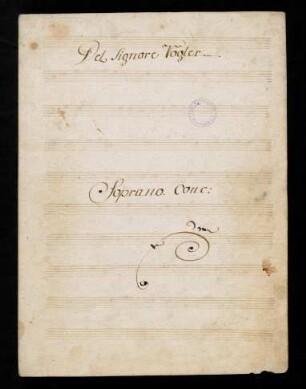 Del Signore Vogler
Soprano Conc: